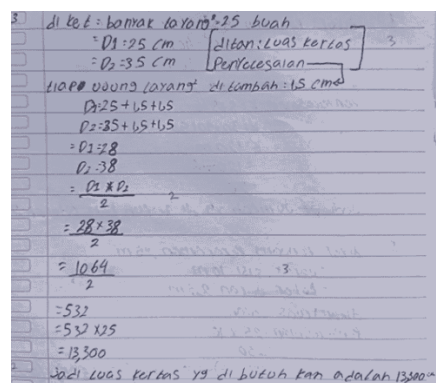 3 di ket : banyak layang²=25 buah
= D1 = 25 cm ditan : luas kertas 3
= D2 = 35 cm Penyelesaian
tiap ujung layang² ditambah = 1,5 cm
D1=25+1,5+1,5
D2=35+1,5+1,5
= D1=28
D2=38
= D1 x D2
2 2
= 28x38
2
= 1064
2
=532
=532 x25
=13,300
Jadi luas kertas yg di butuh kan adalah 13,300